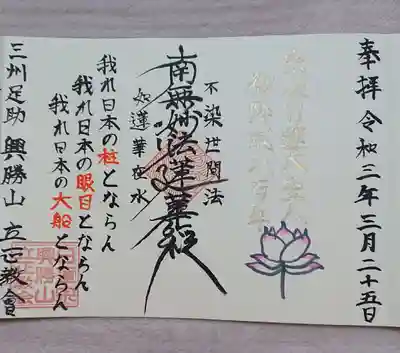 奉拝 令和三年三月二十五日
不染世間法
南無妙法蓮華経
如蓮華在水
我れ日本の柱とならん
我れ日本の眼目とならん
我れ日本の大船とならん
三州足助 興勝山 立正教會